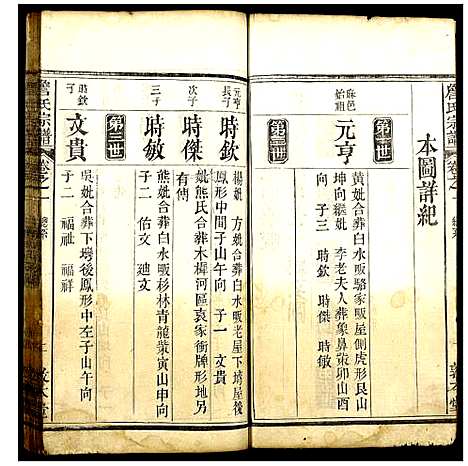 詹氏宗譜
卷之一
本圖詳紀
第一世
麻邑始祖
元亨
黃妣合葬白水畈駱家畈屋側虎形艮山
坤向繼妣 李老夫人葬象鼻萗卯山酉
向 子三 時欽 時傑 時敏
第二世
元亨長子
時欽
楊妣 方妣合葬白水畈老屋下塆屋後
鳳形中間子山午向 子一 文貴
次子
時傑
妣熊氏合葬木樨河區袁家衝牌形地另
有傳
三子
時敏
熊妣合葬白水畈杉林青龍萗寅山申向
子二 佑文 廸文
第三世
時欽子
文貴
吳妣合葬下塆後鳳形中左子山午向
子二 福祉 福祥
詹氏宗譜
卷之一
敦本堂